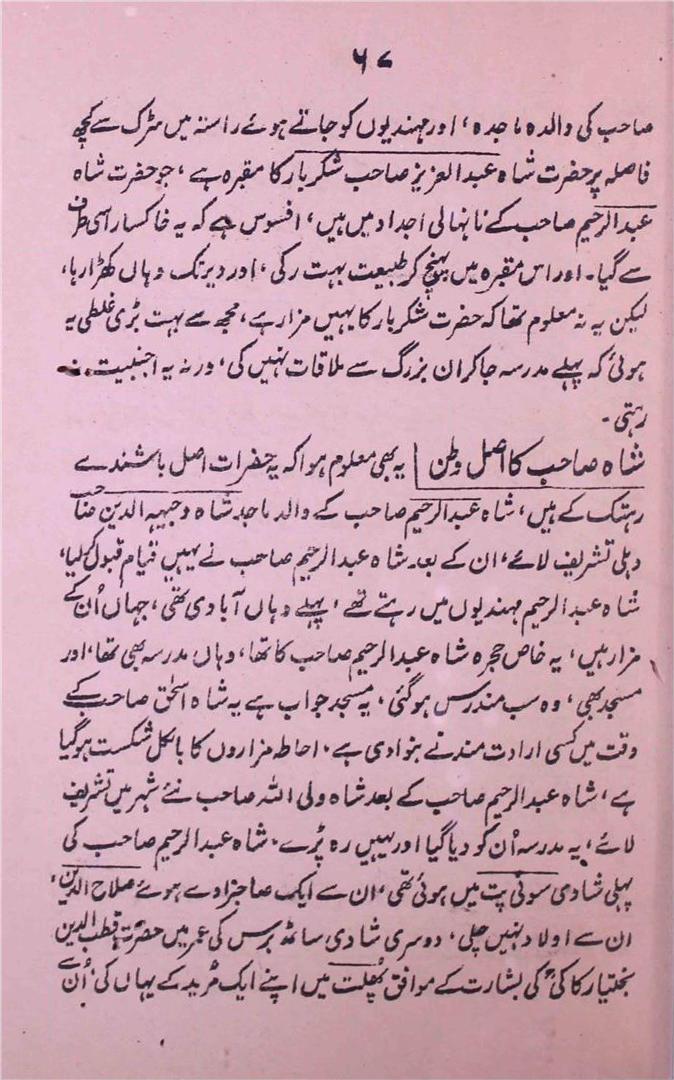 ۶۷
صاحب کی والدہ ماجدہ، اور مہندیوں کو جاتے ہوئے راستہ میں سڑک سے کچھ
فاصلہ پر حضرت شاہ عبدالعزیز صاحب شکربار کا مقبرہ ہے، جو حضرت شاہ
عبدالرحیم صاحب کے نانہالی اجداد میں ہیں، افسوس ہے کہ یہ خاکسار اسی طرف
سے گیا۔ اور اس مقبرہ میں پہنچ کر طبیعت بہت رکی، اور دیر تک وہاں کھڑا رہا،
لیکن یہ نہ معلوم تھا کہ حضرت شکربار کا یہیں مزار ہے، مجھ سے بہت بڑی غلطی یہ
ہوئی کہ پہلے مدرسہ جا کر ان بزرگ سے ملاقات نہیں کی، ورنہ یہ اجنبیت نہ
رہتی۔
شاہ صاحب کا اصل وطن | یہ بھی معلوم ہوا کہ یہ حضرات اصل باشندے
رہتک کے ہیں، شاہ عبدالرحیم صاحب کے والد ماجد شاہ وجیہہ الدین صاحب
دہلی تشریف لائے، ان کے بعد شاہ عبدالرحیم صاحب نے یہیں قیام قبول کیا،
شاہ عبدالرحیم مہندیوں میں رہتے تھے، پہلے وہاں آبادی تھی، جہاں اُن کے
مزار ہیں، یہ خاص حجرہ شاہ عبدالرحیم صاحب کا تھا، وہاں مدرسہ بھی تھا، اور
مسجد بھی، وہ سب مندرس ہو گئی، یہ مسجد جو اب ہے یہ شاہ اسحٰق صاحب کے
وقت میں کسی ارادت مند نے بنوا دی ہے، احاطہ مزاروں کا بالکل شکست ہو گیا
ہے، شاہ عبدالرحیم صاحب کے بعد شاہ ولی اللہ صاحب نئے شہر میں تشریف
لائے، یہ مدرسہ اُن کو دیا گیا اور یہیں رہ پڑے، شاہ عبدالرحیم صاحب کی
پہلی شادی سونی پت میں ہوئی تھی، ان سے ایک صاحبزادے ہوئے صلاح الدین،
ان سے اولاد نہیں چلی، دوسری شادی ساٹھ برس کی عمر میں حضرت قطب الدین
بختیار کاکیؒ کی بشارت کے موافق پھلت میں اپنے ایک مرید کے یہاں کی، اُن سے